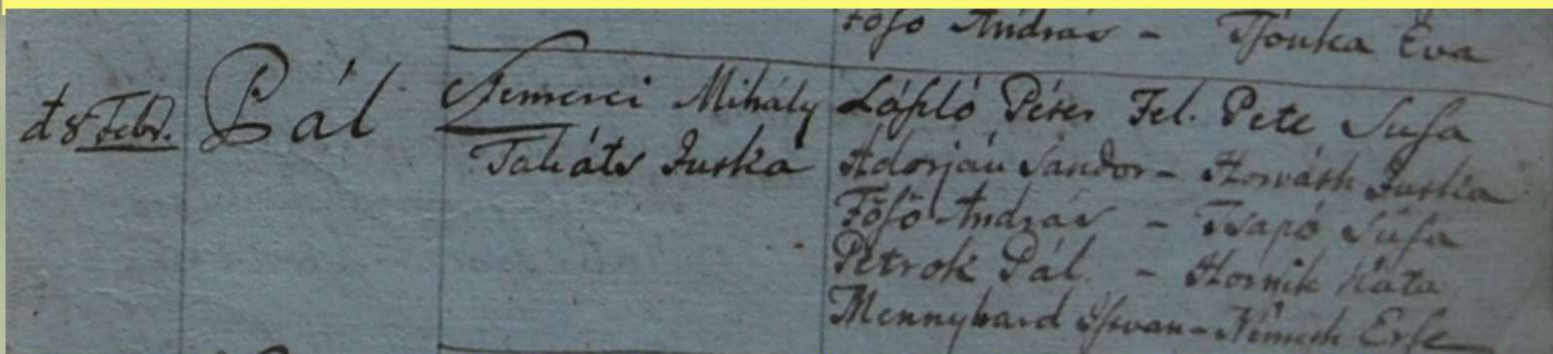 Fösö András - Tsonka Éva
d 8 Febr. Pál Nemerei Mihály László Péter Fel. Pete Susa
Takáts Juska Adorján Sándor - Horváth Juska
Fösö András - Tsapó Susa
Petrok Pál - Hornik Kata
Mennyhard Istvan - Németh Erse